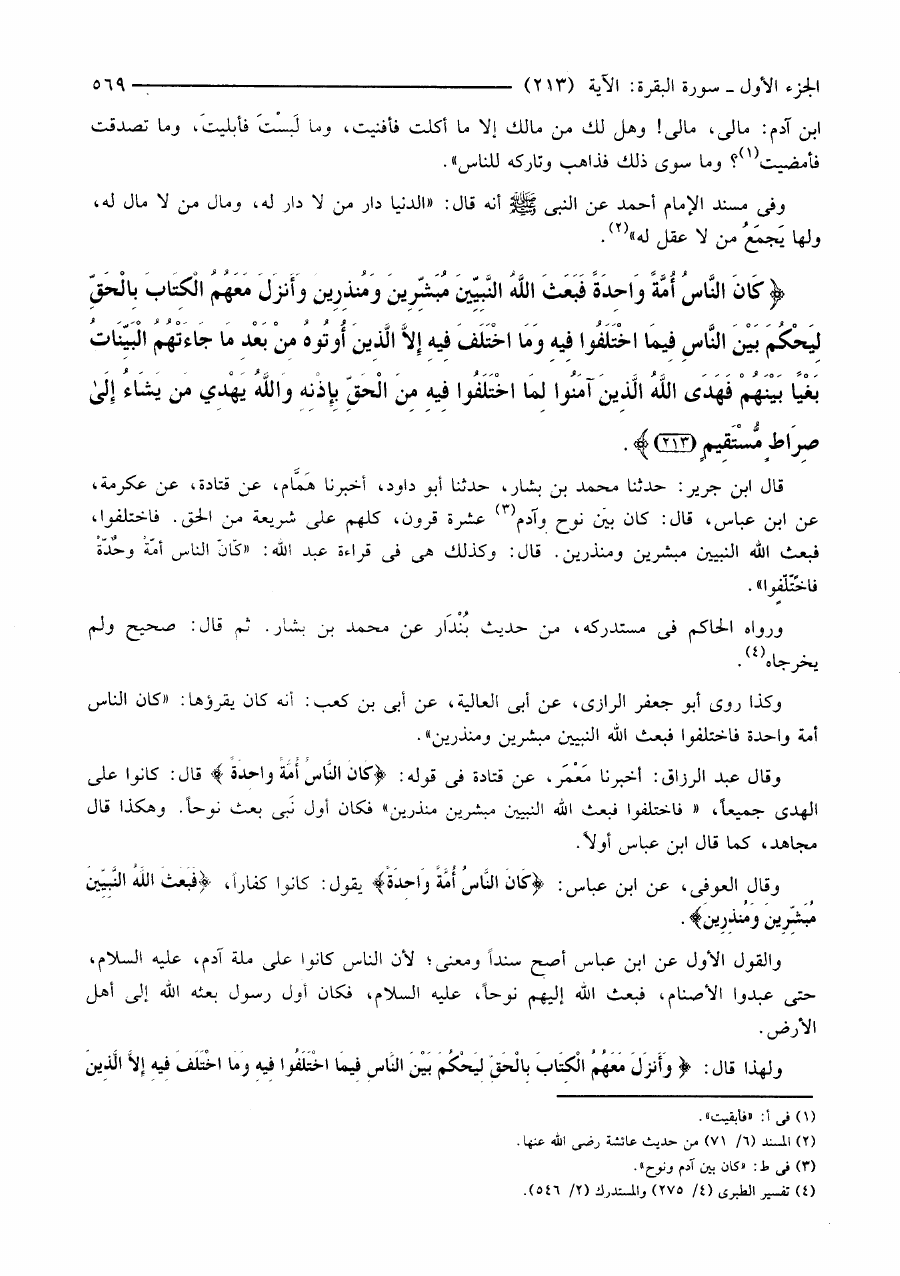 الجزء الأول - سورة البقرة: الآية (٢١٣) ٥٦٩
ابن آدم: مالى، مالى! وهل لك من مالك إلا ما أكلت فأفنيت، وما لَبسْتَ فأبليتَ، وما تصدقت
فأمضيت(١)؟ وما سوى ذلك فذاهب وتاركه للناس».
وفى مسند الإمام أحمد عن النبى ﷺ أنه قال: «الدنيا دار من لا دار له، ومال من لا مال له،
ولها يَجمَعُ من لا عقل له»(٢).
﴿ كَانَ النَّاسُ أُمَّةً وَاحِدَةً فَبَعَثَ اللَّهُ النَّبِيِّينَ مُبَشِّرِينَ وَمُنذِرِينَ وَأَنزَلَ مَعَهُمُ الْكِتَابَ بِالْحَقِّ
لِيَحْكُمَ بَيْنَ النَّاسِ فِيمَا اخْتَلَفُوا فِيهِ وَمَا اخْتَلَفَ فِيهِ إِلاَّ الَّذِينَ أُوتُوهُ مِنْ بَعْدِ مَا جَاءَتْهُمُ الْبَيِّنَاتُ
بَغْيًا بَيْنَهُمْ فَهَدَى اللَّهُ الَّذِينَ آمَنُوا لِمَا اخْتَلَفُوا فِيهِ مِنَ الْحَقِّ بِإِذْنِهِ وَاللَّهُ يَهْدِي مَن يَشَاءُ إِلَىٰ
صِرَاطٍ مُّسْتَقِيمٍ (٢١٣) ﴾ .
قال ابن جرير: حدثنا محمد بن بشار، حدثنا أبو داود، أخبرنا هَمَّام، عن قتادة، عن عكرمة،
عن ابن عباس، قال: كان بين نوح وآدم(٣) عشرة قرون، كلهم على شريعة من الحق. فاختلفوا،
فبعث الله النبيين مبشرين ومنذرين. قال: وكذلك هى فى قراءة عبد الله: «كَانَ الناس أمَّةً وحْدَةً
فاخْتَلِّفوا».
ورواه الحاكم فى مستدركه، من حديث بُنْدَار عن محمد بن بشار. ثم قال: صحيح ولم
يخرجاه(٤).
وكذا روى أبو جعفر الرازى، عن أبى العالية، عن أبى بن كعب: أنه كان يقرؤها: «كان الناس
أمة واحدة فاختلفوا فبعث الله النبيين مبشرين ومنذرين».
وقال عبد الرزاق: أخبرنا مَعْمَر، عن قتادة فى قوله: ﴿كَانَ النَّاسُ أُمَّةً وَاحِدَةً ﴾ قال: كانوا على
الهدى جميعاً، « فاختلفوا فبعث الله النبيين مبشرين منذرين» فكان أول نَبى بعث نوحاً. وهكذا قال
مجاهد، كما قال ابن عباس أولاً.
وقال العوفى، عن ابن عباس: ﴿كَانَ النَّاسُ أُمَّةً وَاحِدَةً﴾ يقول: كانوا كفاراً، ﴿فَبَعَثَ اللَّهُ النَّبِيِّينَ
مُبَشِّرِينَ وَمُنذِرِينَ﴾ .
والقول الأول عن ابن عباس أصح سنداً ومعنى؛ لأن الناس كانوا على ملة آدم، عليه السلام،
حتى عبدوا الأصنام، فبعث الله إليهم نوحاً، عليه السلام، فكان أول رسول بعثه الله إلى أهل
الأرض.
ولهذا قال: ﴿ وَأَنزَلَ مَعَهُمُ الْكِتَابَ بِالْحَقِّ لِيَحْكُمَ بَيْنَ النَّاسِ فِيمَا اخْتَلَفُوا فِيهِ وَمَا اخْتَلَفَ فِيهِ إِلاَّ الَّذِينَ
(١) فى أ: «فأبقيت».
(٢) المسند (٦/ ٧١) من حديث عائشة رضى الله عنها.
(٣) فى ط: «كان بين آدم ونوح».
(٤) تفسير الطبرى (٤/ ٢٧٥) والمستدرك (٢/ ٥٤٦).